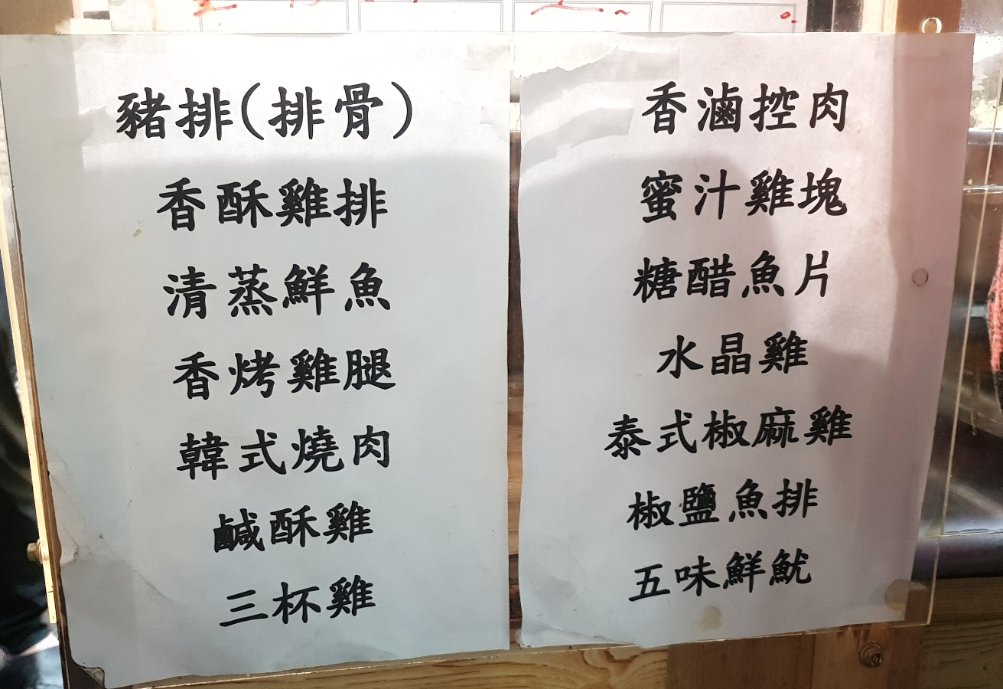 豬排(排骨)
香酥雞排
清蒸鮮魚
香烤雞腿
韓式燒肉
鹹酥雞
三杯雞
香滷控肉
蜜汁雞塊
糖醋魚片
水晶雞
泰式椒麻雞
椒鹽魚排
五味鮮魷